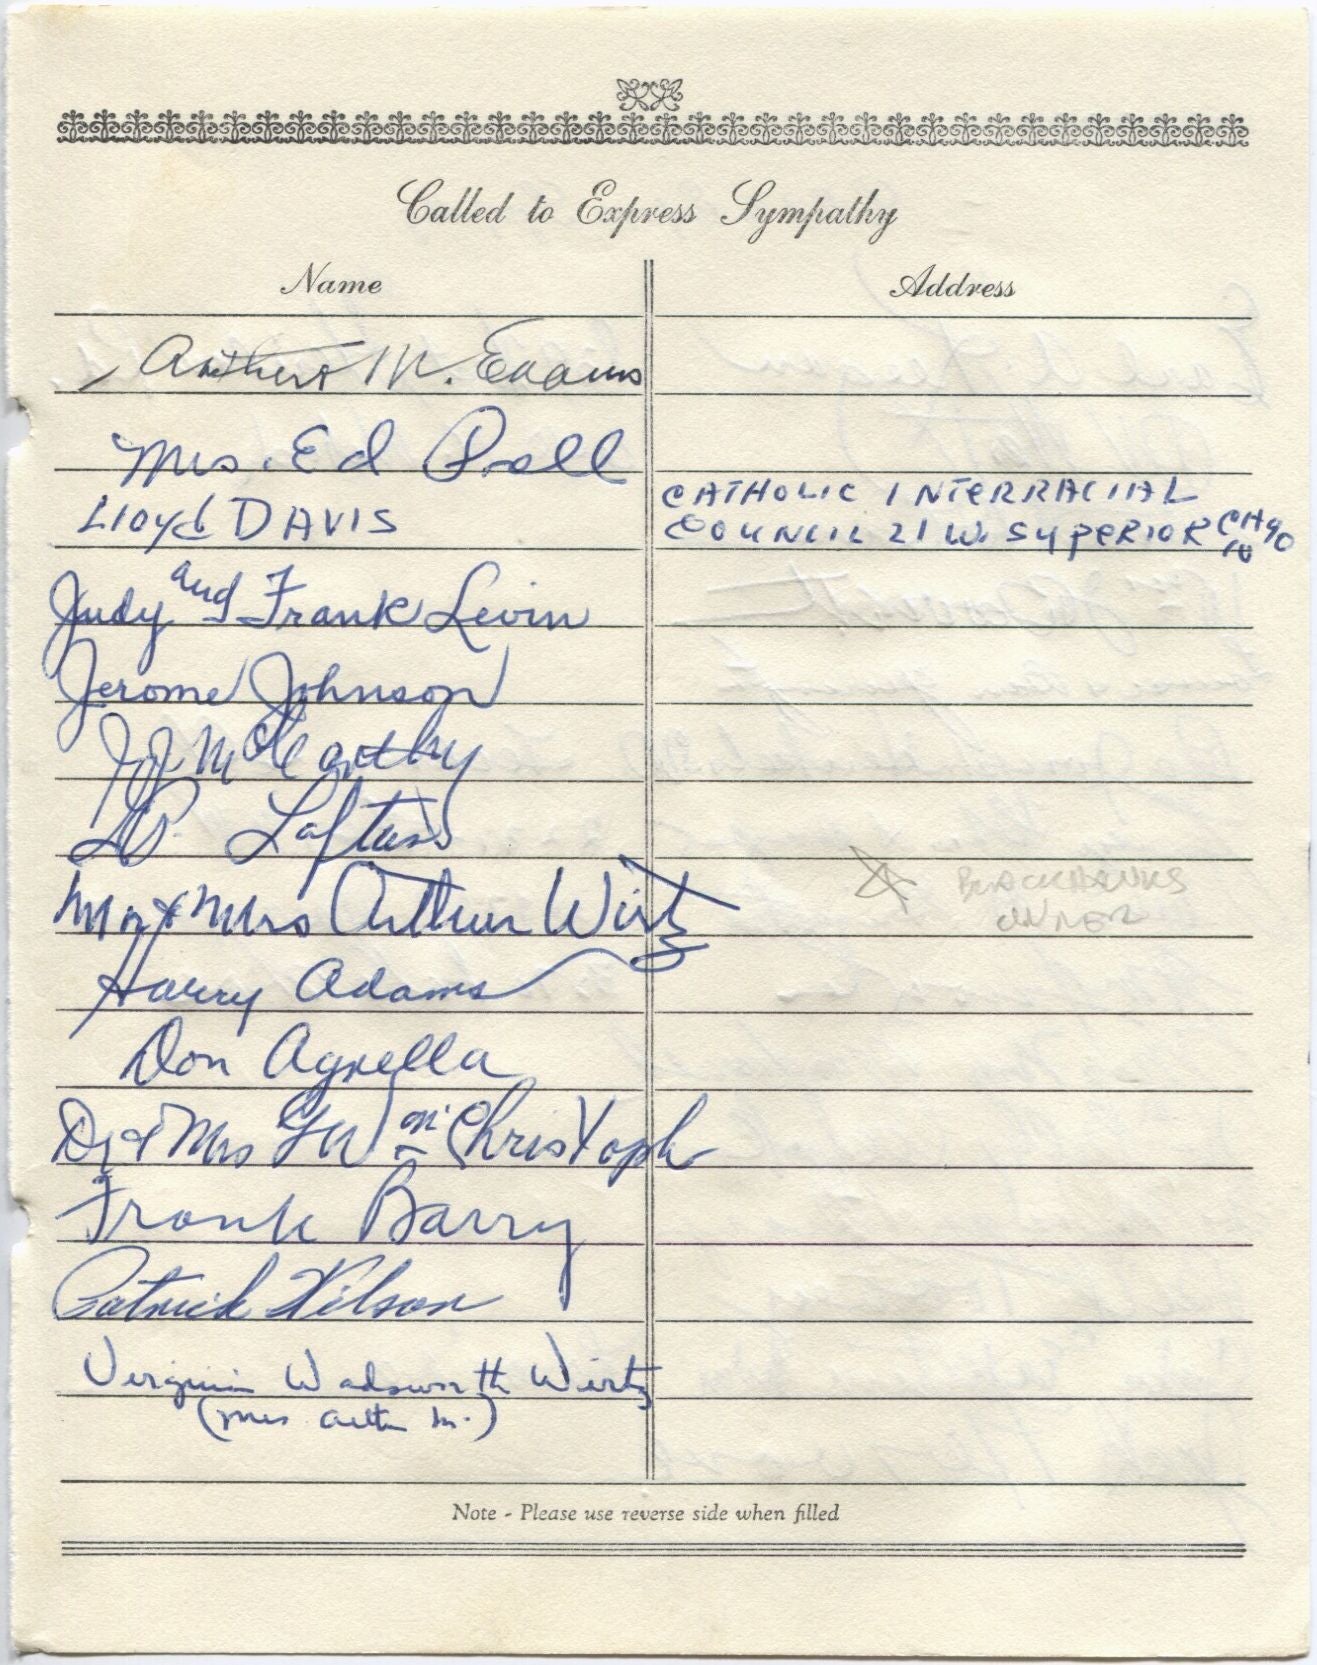 Called to Express Sympathy
Name Address
Arthur M.
Mrs. Ed
LLOYD DAVIS CATHOLIC INTERRACIAL
COUNCIL 21 W. SUPERIOR CHGO
10
Judy and Frank Levin
Jerome Johnson
JJ McCarthy
Loftus
Mr & Mrs Arthur Wirtz BLACKHAWKS
OWNER
Harry Adams
Don Agrella
Dr & Mrs Christoph
Frank Barry
Patrick Wilson
Virginia Wadsworth Wirtz
(Mrs Arthur M.)
Note - Please use reverse side when filled